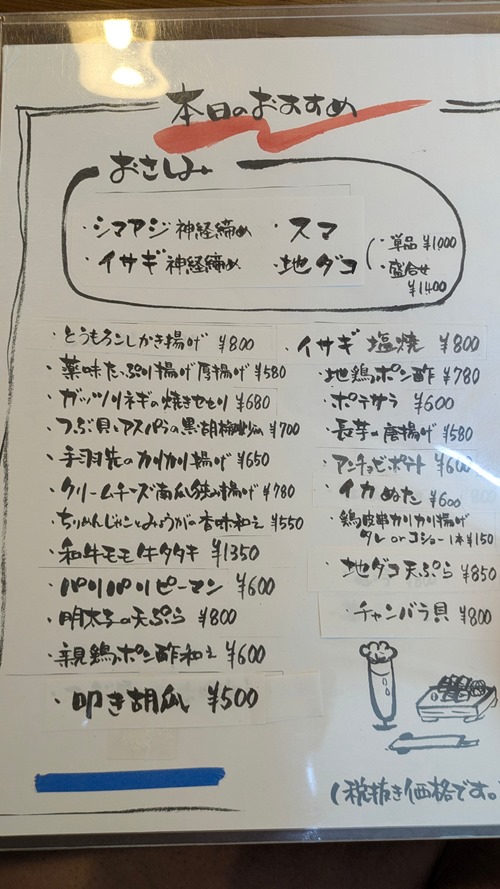 本日のおすすめ
おさしみ
・シマアジ 神経締め ・スマ
・イサギ 神経締め ・地ダコ
・単品 ¥1,000
・盛合せ ¥1400
・とうもろこしかき揚げ ¥800
・薬味たっぷり揚げ厚揚げ ¥580
・ガッツリネギの焼きせせり ¥680
・つぶ貝とアスパラの黒胡椒炒め ¥700
・手羽先のカリカリ揚げ ¥650
・クリームチーズ南瓜挟み揚げ ¥780
・ちりめんじゃことみょうがの香味和え ¥550
・和牛モモ牛タタキ ¥1350
・パリパリピーマン ¥600
・明太子の天ぷら ¥800
・親鶏ポン酢和え ¥600
・叩き胡瓜 ¥500
・イサギ 塩焼 ¥800
・地鶏ポン酢 ¥780
・ポテサラ ¥600
・長芋の唐揚げ ¥580
・アンチョビポテト ¥600
・イカぬた ¥600
・鶏皮串カリカリ揚げ
タレ or コショー 1本¥150
・地ダコ天ぷら ¥850
・チャンバラ貝 ¥800
(税抜き価格です。